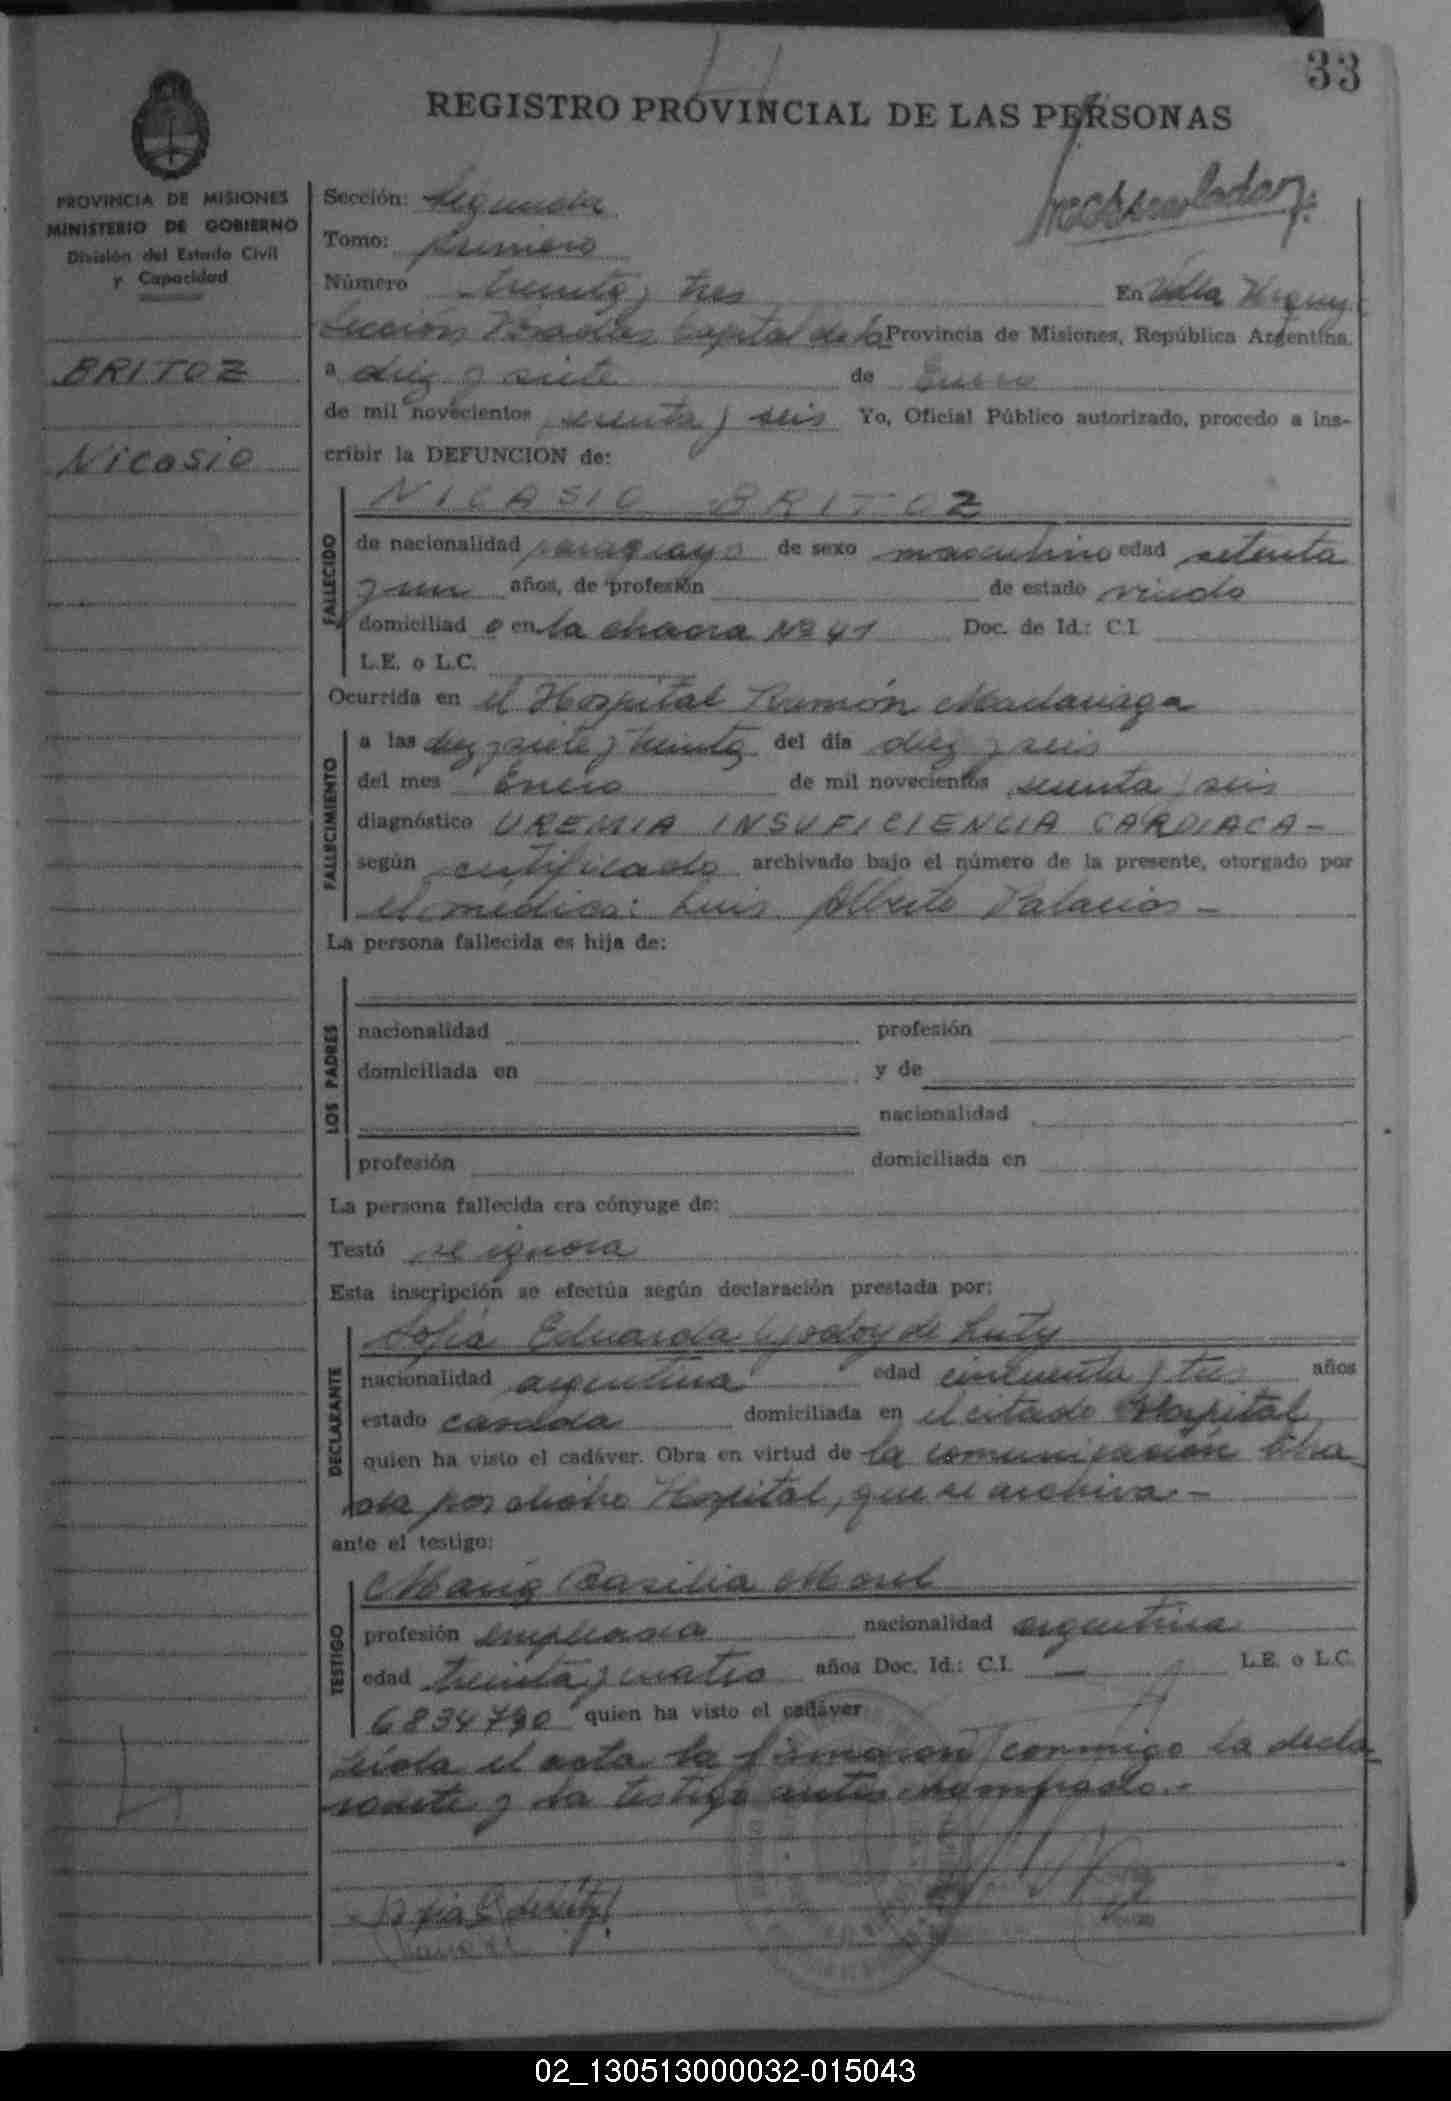 33
REGISTRO PROVINCIAL DE LAS PERSONAS
PROVINCIA DE MISIONES
MINISTERIO DE GOBIERNO
División del Estado Civil
y Capacidad
BRITOZ
Nicasio
Sección: Segunda
Tomo: primero
Número treinta y tres En Villa Urquiza
Sección Posadas Capital de la Provincia de Misiones, República Argentina.
a diez y siete de Enero
de mil novecientos sesenta y seis Yo, Oficial Público autorizado, procedo a ins-
cribir la DEFUNCION de:
FALLECIDO
NICASIO BRITOZ
de nacionalidad paraguayo de sexo masculino edad setenta
y un años, de profesión de estado viudo
domiciliad o en la chacra Nº 41 Doc. de Id.: C.I.
L.E. o L.C.
Ocurrida en el Hospital Ramón Madariaga
FALLECIMIENTO
a las diez y siete y treinta del día diez y seis
del mes Enero de mil novecientos sesenta y seis
diagnóstico UREMIA INSUFICIENCIA CARDIACA-
según certificado archivado bajo el número de la presente, otorgado por
el médico: Luis Alberto Palacios -
La persona fallecida es hija de:
LOS PADRES
nacionalidad profesión
domiciliada en y de
nacionalidad
profesión domiciliada en
La persona fallecida era cónyuge de:
Testó se ignora
Esta inscripción se efectúa según declaración prestada por:
DECLARANTE
Sofía Eduarda Godoy de Luty
nacionalidad argentina edad cincuenta y tres años
estado casada domiciliada en el citado Hospital
quien ha visto el cadáver. Obra en virtud de la comunicación libra
da por dicho Hospital, que se archiva.-
ante el testigo:
TESTIGO
María Basilia Morel
profesión empleada nacionalidad argentina
edad treinta y cuatro años Doc. Id.: C.I. — L.E. o L.C.
6834790 quien ha visto el cadáver
Leída el acta la firmaron conmigo la decla
rante y la testigo antes nombrado.-
02_130513000032-015043